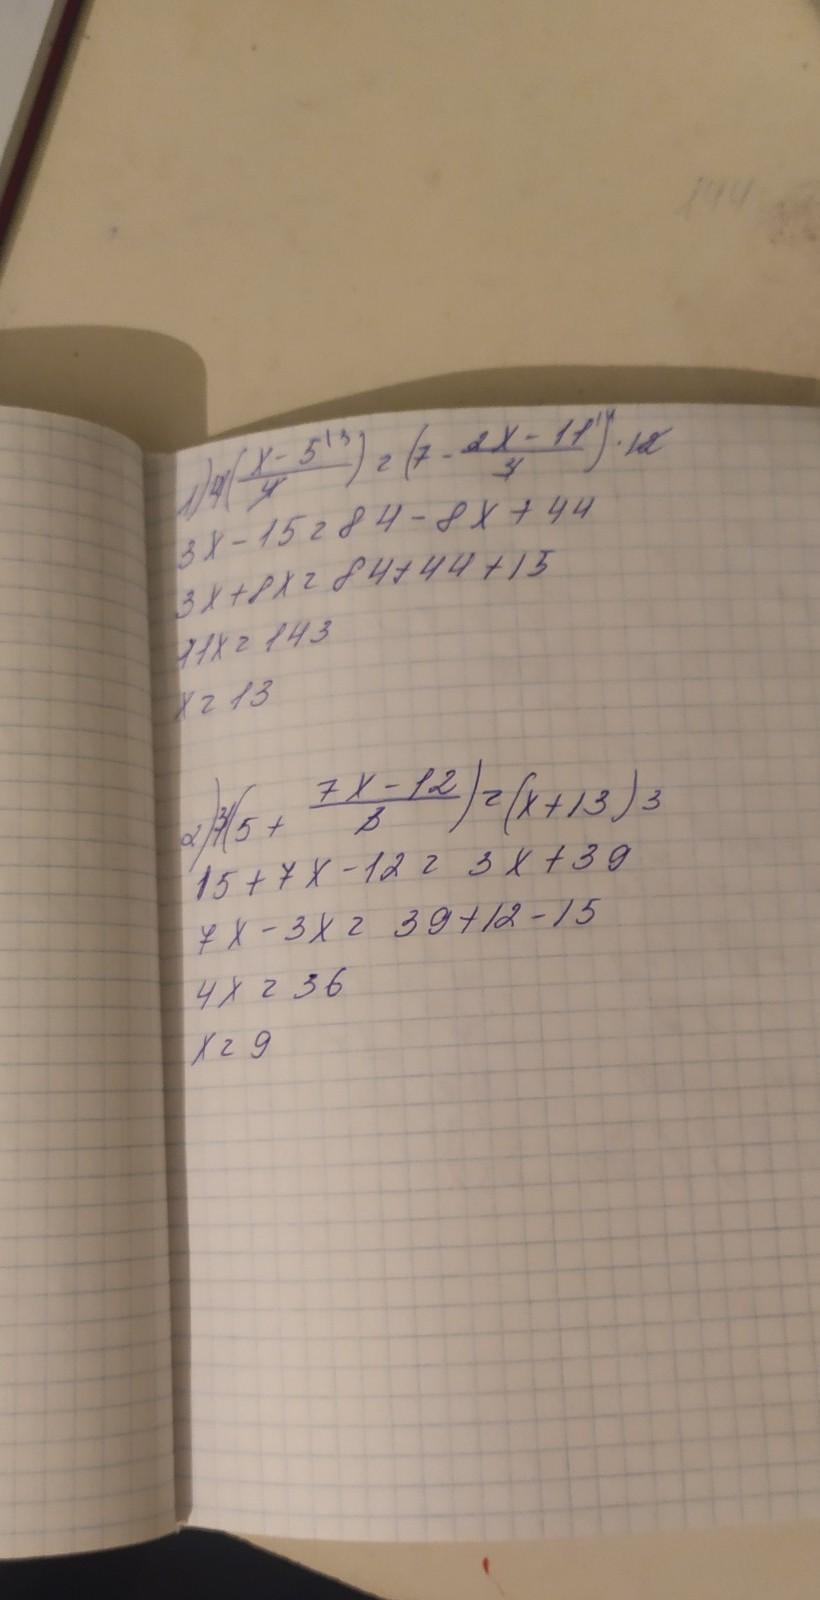 144
1) 12(x-5/4) = (7 - 2x-11/3) · 12
3x - 15 = 84 - 8x + 44
3x + 8x = 84 + 44 + 15
11x = 143
x = 13
2) 3(5 + 7x-12/3) = (x+13) 3
15 + 7x - 12 = 3x + 39
7x - 3x = 39 + 12 - 15
4x = 36
x = 9